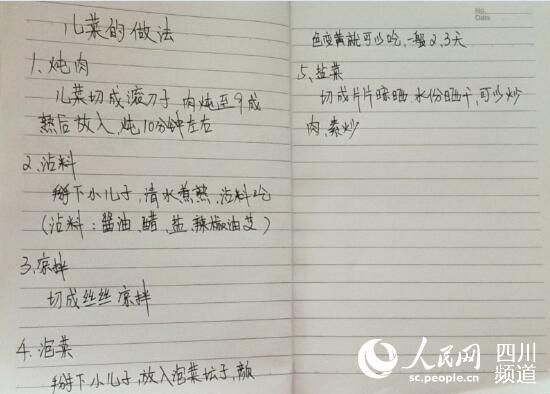 儿菜的做法
1、炖肉
儿菜切成滚刀子,肉炖至9成
熟后放入,炖10分钟左右
2、沾料
掰下小儿子,清水煮熟,沾料吃
(沾料:酱油、醋、盐、辣椒油
3、凉拌
切成丝丝凉拌
4、泡菜
掰下小儿子,放入泡菜坛子,颜
No.
Date
色变黄就可以吃,一般2、3天
5、盐菜
切成片片晾晒,水份晒干,可以炒
肉、素炒
人民网 四川
sc.people.cn 频道